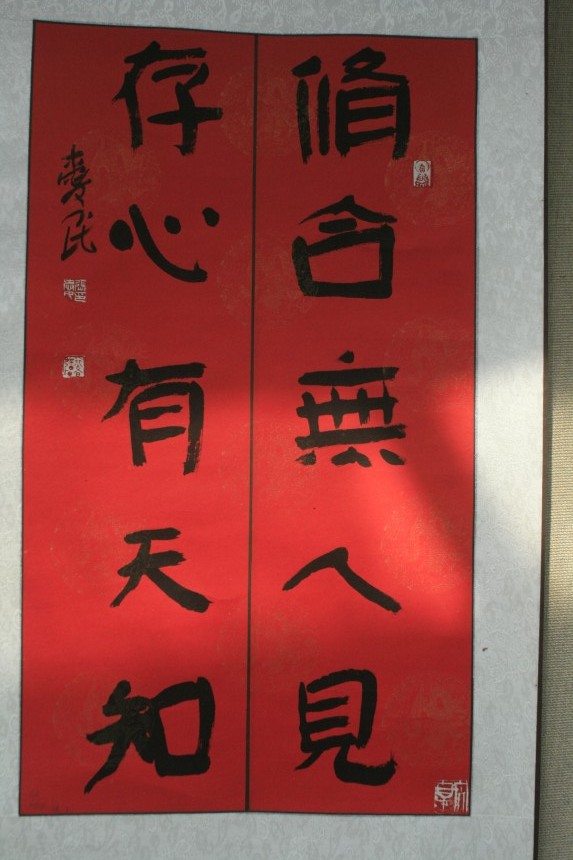 脩合無人見
存心有天知